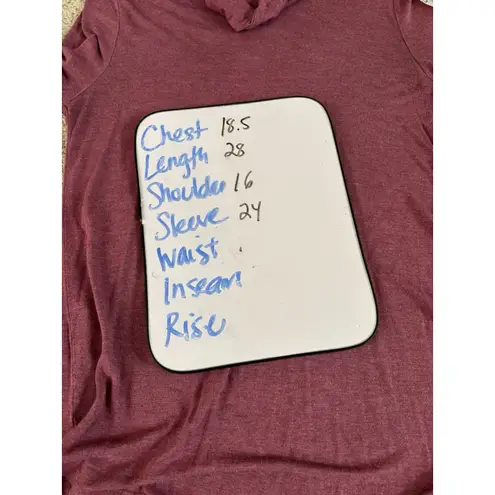 Chest 18.5
Length 28
Shoulder 16
Sleeve 24
Waist
Inseam
Rise